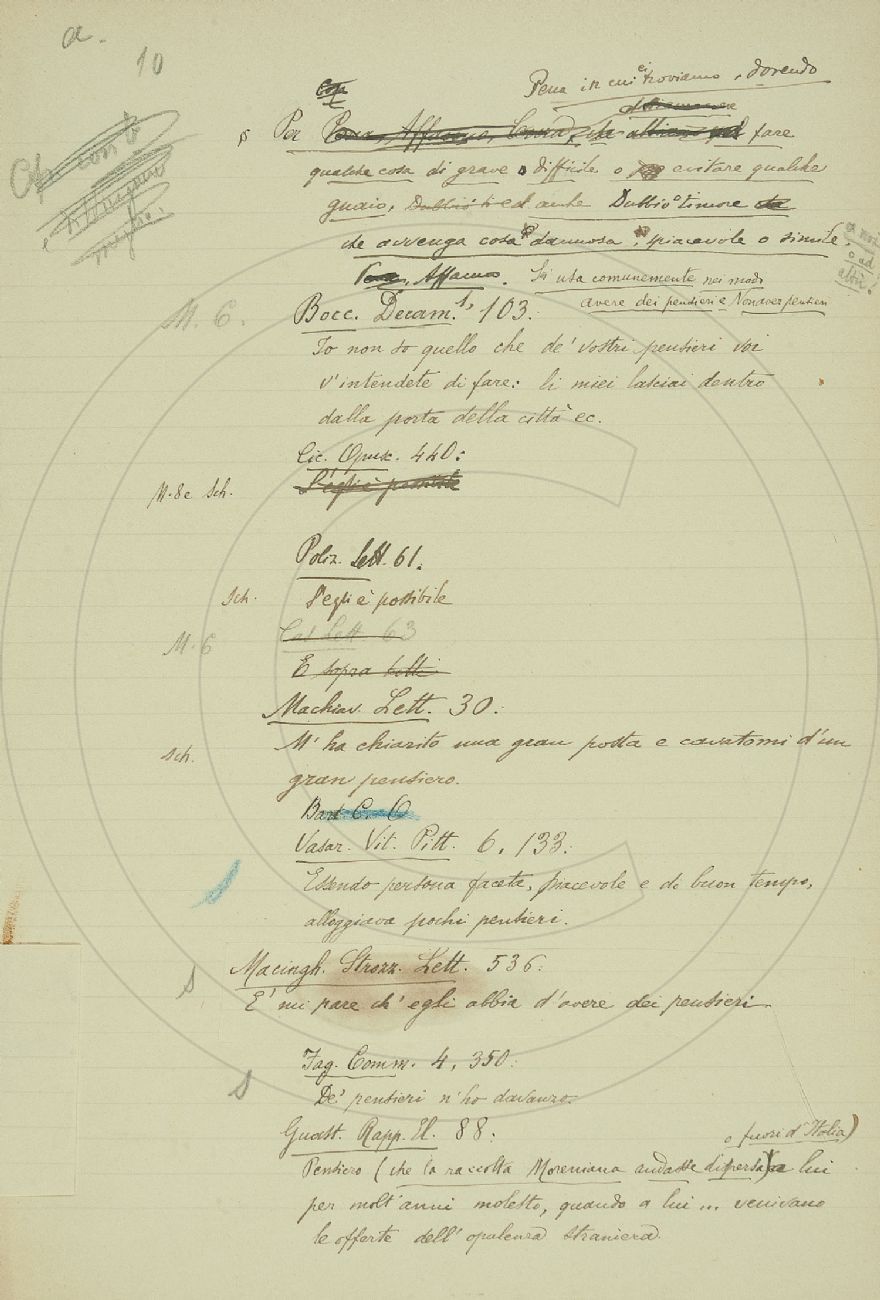 a.
10
Cosa
Pena in cui ci troviamo, dovendo
§ Per Pena, Affanno, fare
qualche cosa di grave o difficile o evitare qualche
guaio, Dubbio ed anche Dubbio o timore
che avvenga cosa dannosa, spiacevole o simile,
a noi
o ad
altri.
Pena, Affanno. Si usa comunemente nei modi
avere dei pensieri e Non aver pensieri
M. 6.
Bocc. Decam. 1, 103:
Io non so quello che de' vostri pensieri voi
v'intendete di fare: li miei lasciai dentro
dalla porta della città ec.
Cic. Opusc. 440:
M. 8 e Sch.
S'egli è possibile
Poliz. Lett. 61.
Sch. S'egli è possibile
M. 6 Lett. 63
E sopra tutti
Machiav. Lett. 30:
Sch.
M'ha chiarito una gran posta e cavatomi d'un
gran pensiero.
Vasar. Vit. Pitt. 6, 133:
Essendo persona faceta, piacevole e di buon tempo,
alloggiava pochi pensieri.
Macingh. Strozz. Lett. 536:
E' mi pare ch' egli abbia d'avere dei pensieri.
Fag. Comm. 4, 350:
De' pensieri n'ho davanzo.
Guast. Rapp. El. 88:
o fuori d'Italia)
Pensiero (che la raccolta Moreniana andasse dispersa) a lui
per molt'anni molesto, quando a lui ... venivano
le offerte dell' opulenza straniera.